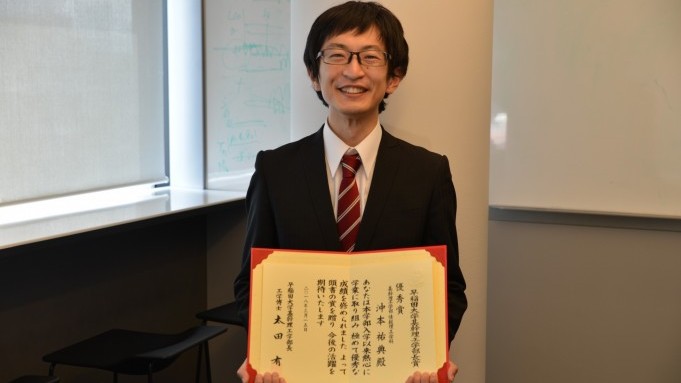 早稲田大学基幹理工学部長賞
優秀賞
沖本祐典殿
あなたは本学部入学以来熱心に
学業に取り組み 極めて優秀な
成績を修められました よって
を贈り 今後の活躍を
期待いたします
早稲田大学基幹理工学部長
工学博士 太田 有